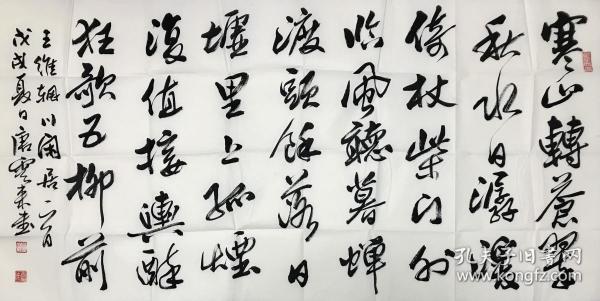 寒山轉蒼翠
秋水日潺湲
倚杖柴门外
临風聽暮蝉
渡頭餘落日
墟里上孤煙
復值接輿醉
狂歌五柳前
王維輞川閑居一首
戊戌夏日唐雲来书
孔夫子旧书网
www.kongfz.com